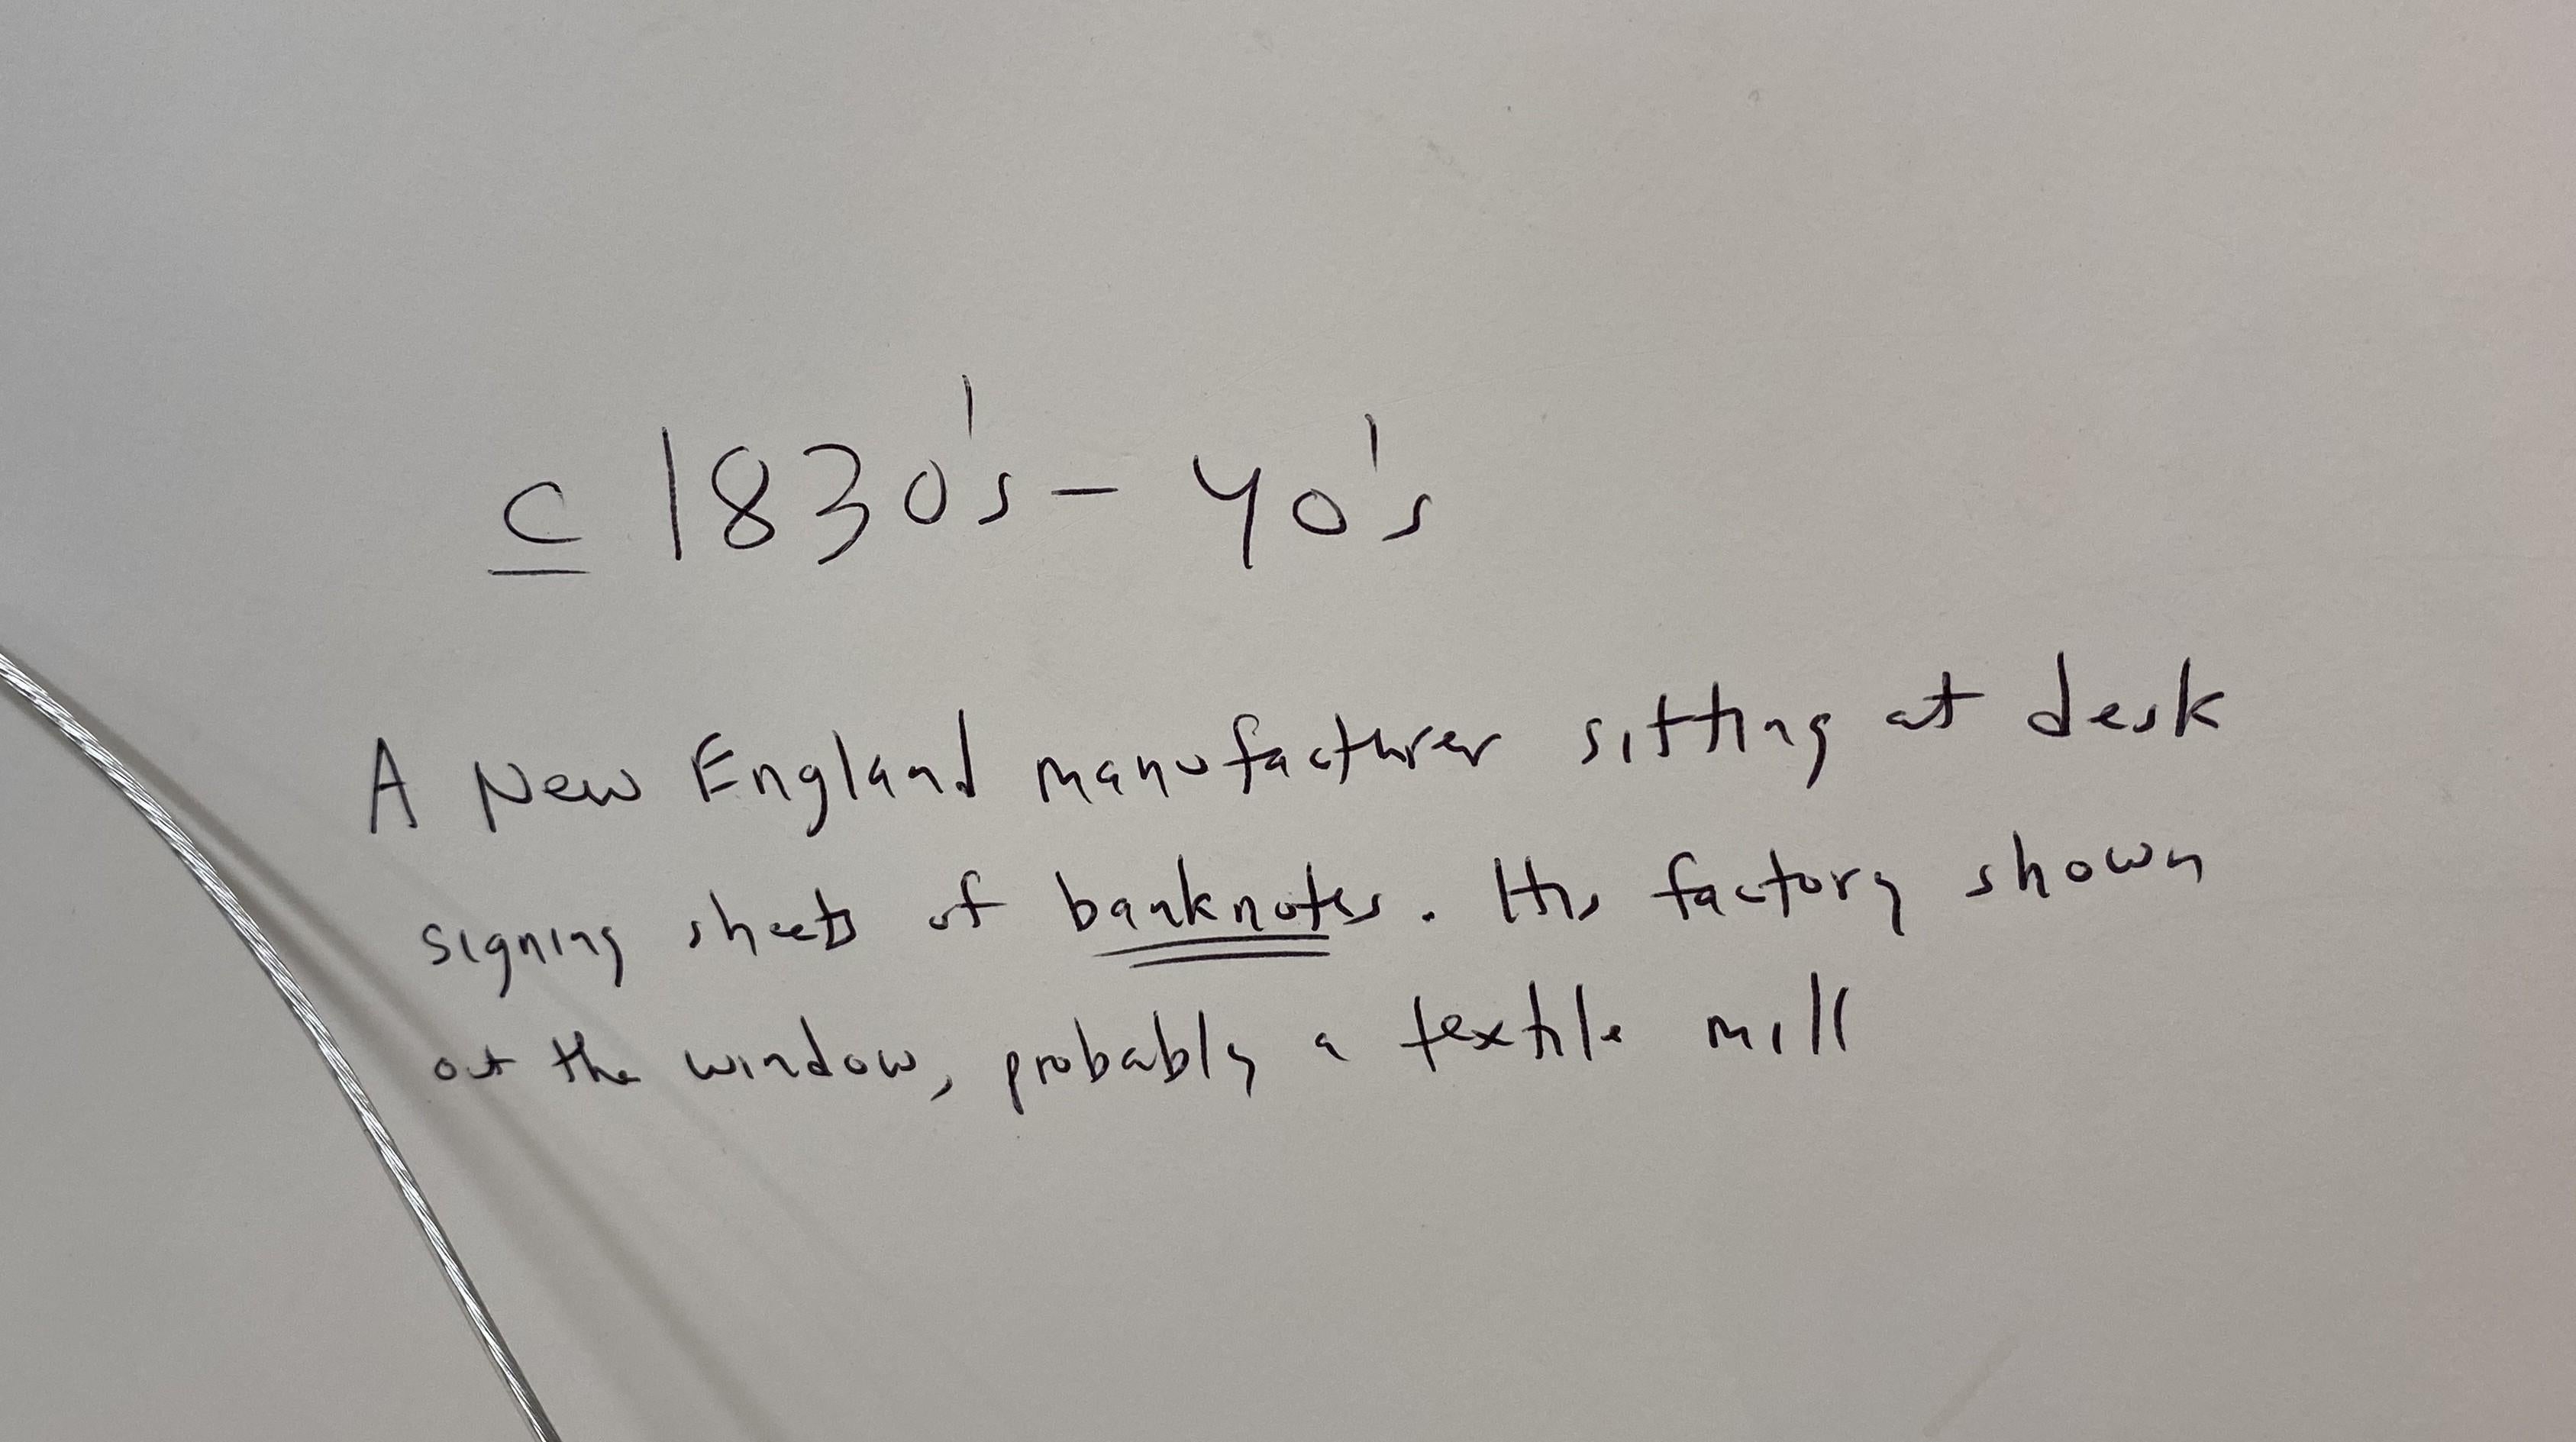 c 1830's - 40's
A New England manufacturer sitting at desk
signing sheets of banknotes. His factory shown
out the window, probably a textile mill